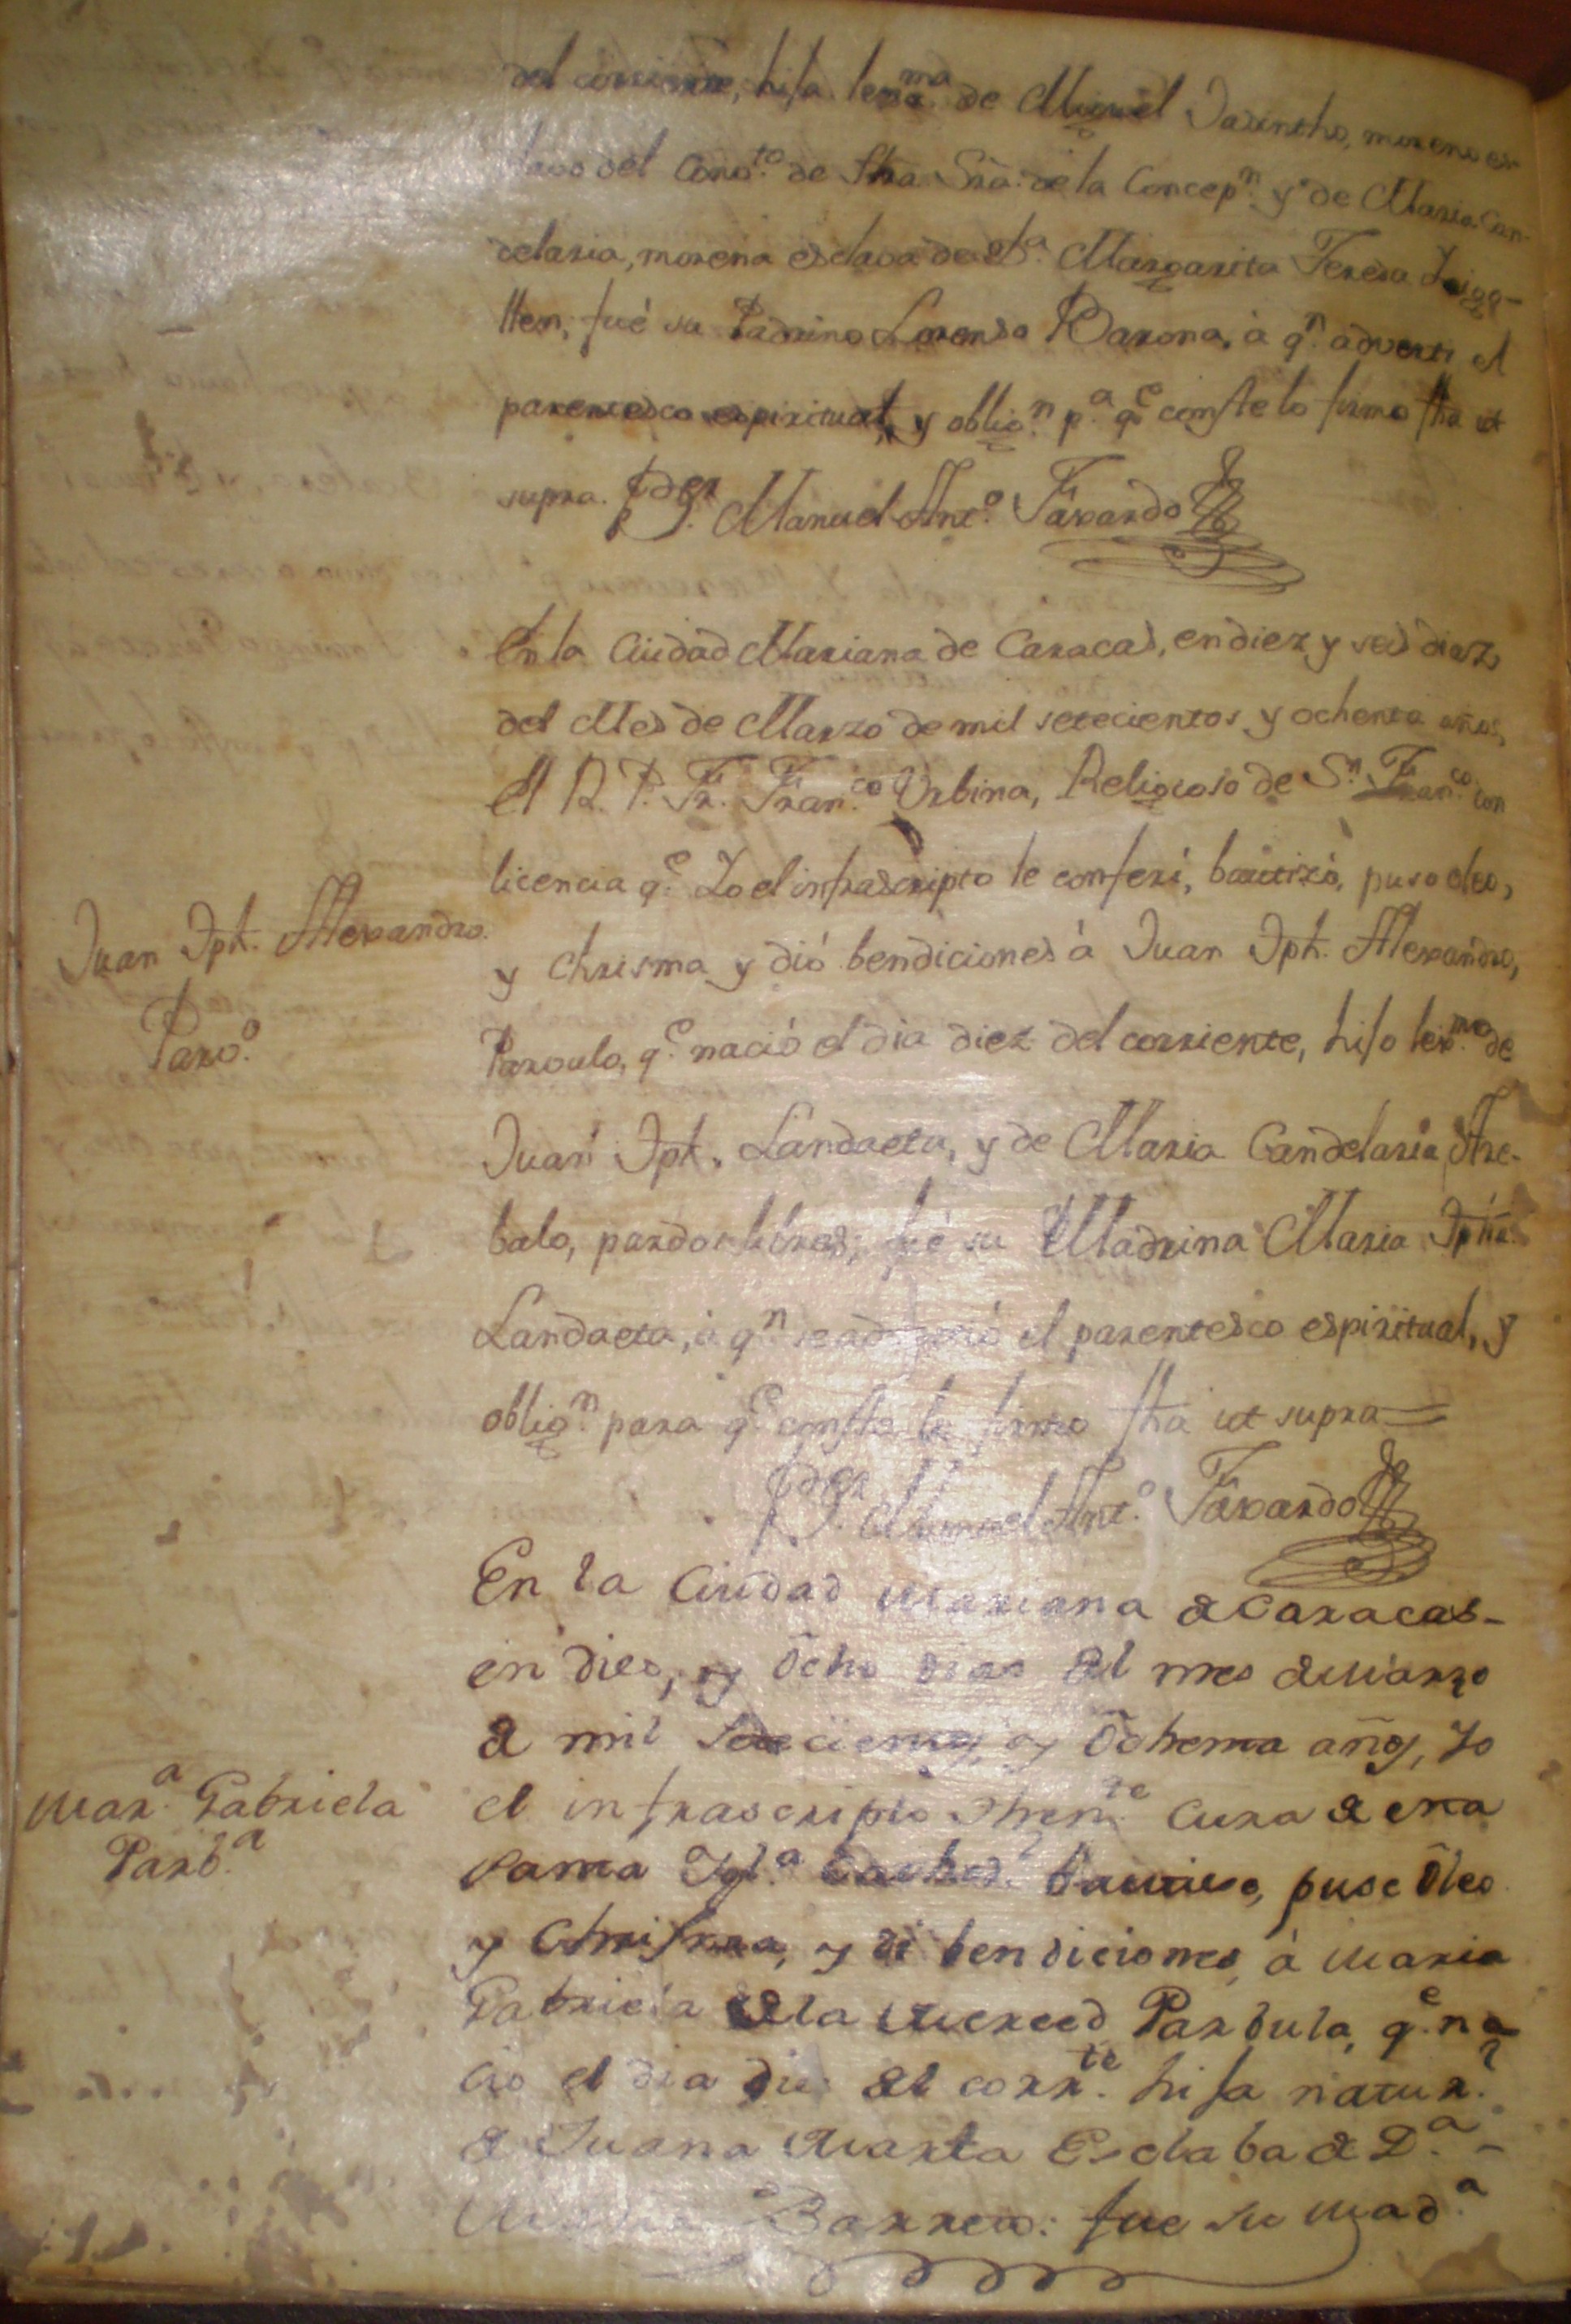 del corriente, hija legma. de Miguel Jacintho, moreno es-
clavo del Convto. de Ntra. Sra. de la Concepn. y de Maria Can-
delaria, morena esclava de Da. Margarita Teresa
fué su Padrino Lorenzo Barona, à qn. adverti el
parentesco espiritual, y obligon. pa. qe. conste lo firmo fha ut
supra. Manuel Anto. Faxardo
En la Ciudad Mariana de Caracas, en diez y seis diaz,
del Mes de Marzo de mil setecientos y ochenta años,
el R. P. Fr. Franco. Urbina, Religioso de Sn. Franco. con
licencia qe. Yo el infrascripto le conferí, bautizó, puso oleo,
y chrisma y dió bendiciones à Juan Jph. Alexandro,
Juan Jph. Alexandro.
Parvo.
Parvulo, qe. nació el dia diez del corriente, hijo legmo. de
Juan Jph. Landaeta, y de Maria Candelaria Are-
balo, pardos libres, fué su Madrina Maria Jpha.
Landaeta, à qn. se advirtió el parentesco espiritual, y
obligon. para qe. conste lo firmo fha ut supra=
Manuel Anto. Faxardo
En la Ciudad Mariana de Caracas-
en dies, y ocho dias del mes de Marzo
de mil Setecientos, y ochenta años, Yo
el infrascripto Thente. Cura de esta
Mara. Gabriela
Parba.
Santa Igla. Cathedl. bautise, puse oleo
y Chrisma, y di bendiciones, à Maria
Gabriela de la Merced Parbula, qe. na-
cio el dia del corrte. hija naturl.
de Juana Marta Esclaba de Da. -
Barreto: fue su Mada.